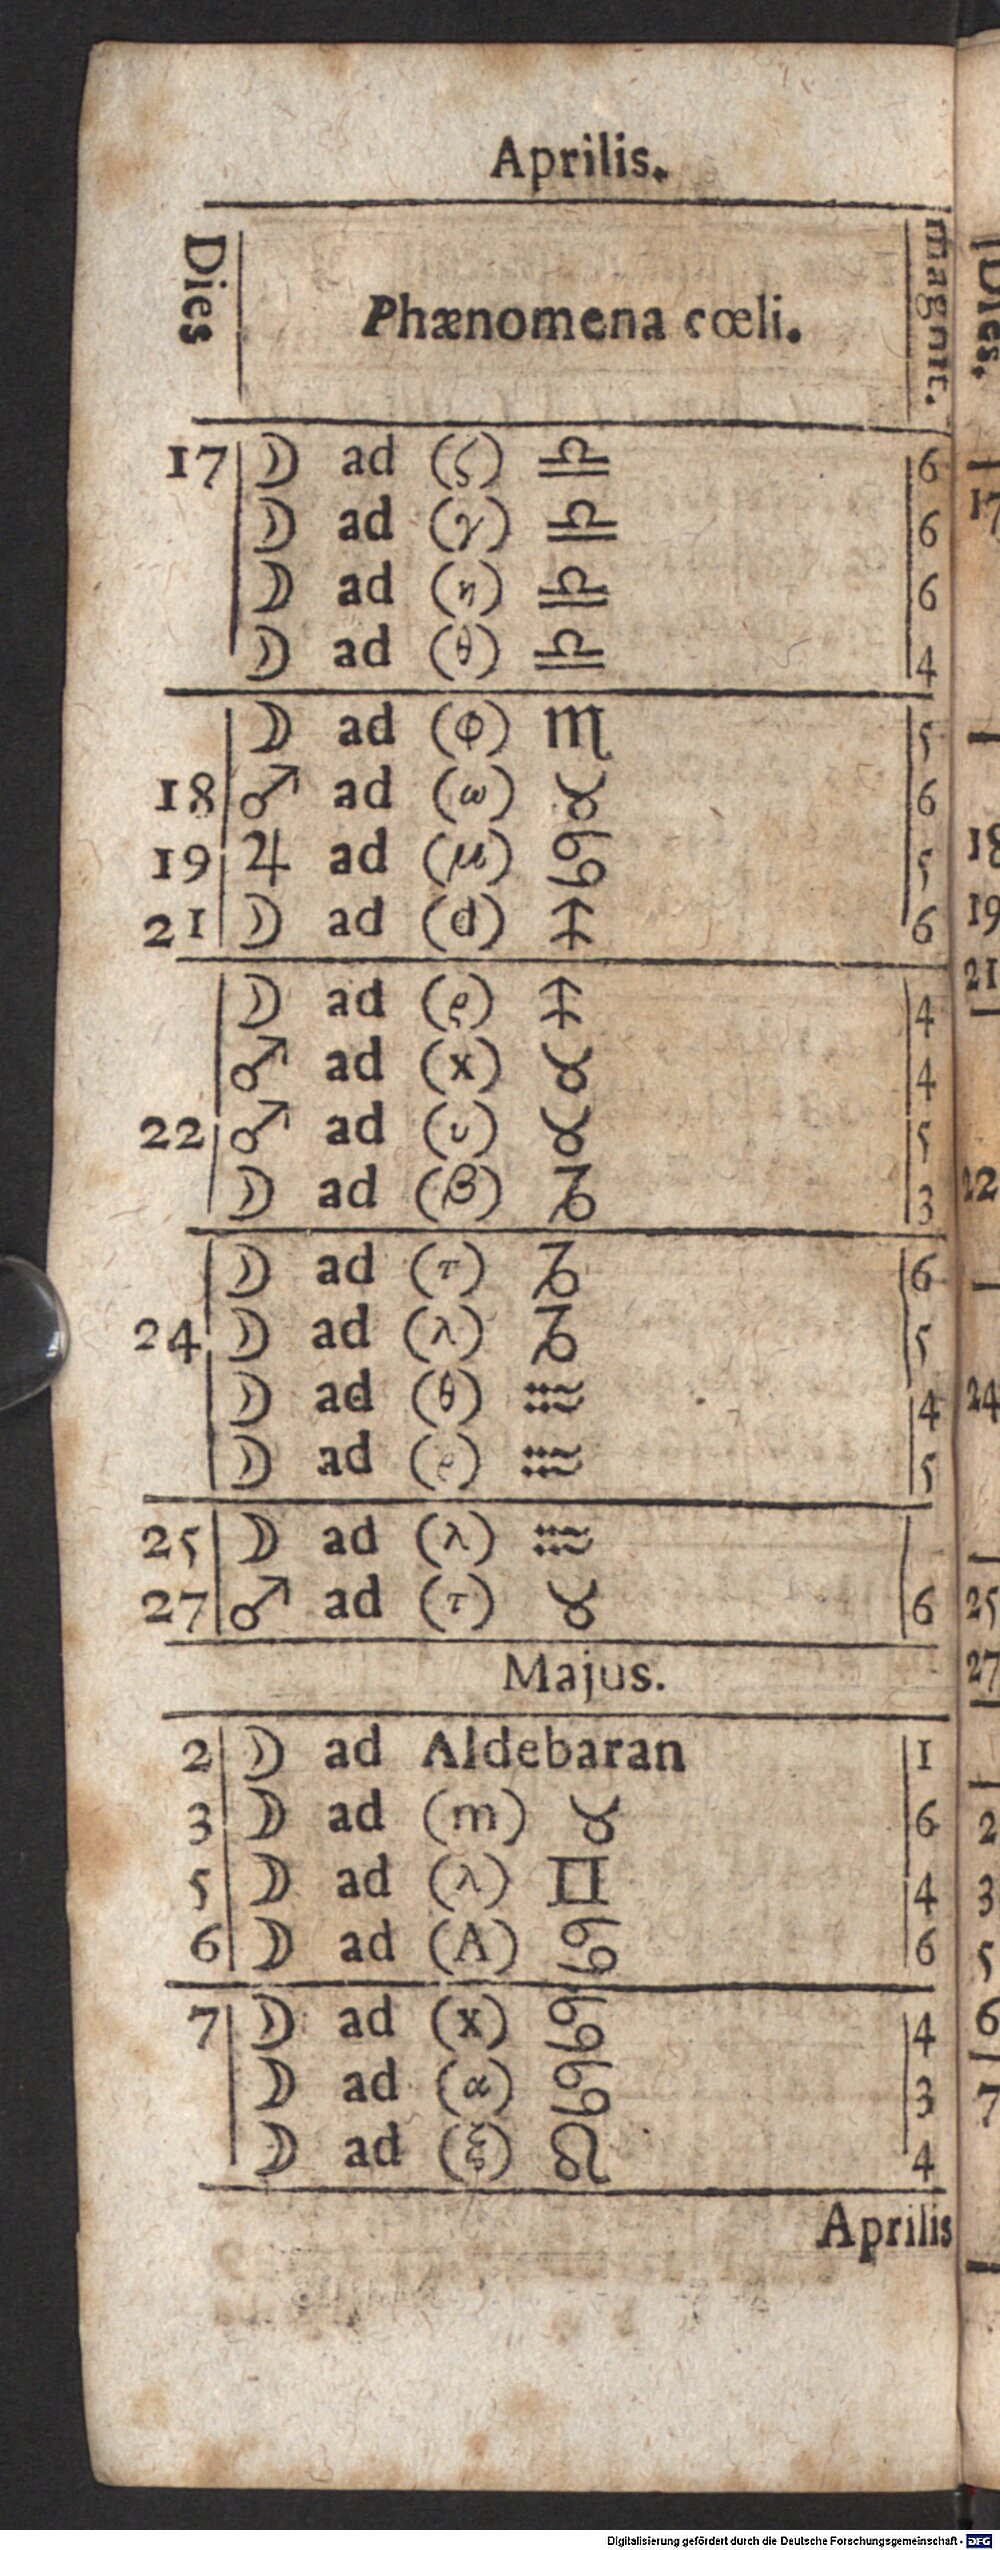 Aprilis.
Dies Phænomena cœli. magnit.
17 ☽ ad (ζ) ♎ 6
☽ ad (γ) ♎ 6
☽ ad (η) ♎ 6
☽ ad (θ) ♎ 4
☽ ad (φ) ♏ 5
18 ♂ ad (ω) ♉ 6
19 ♃ ad (μ) ♋ 5
21 ☽ ad (d) ♐ 6
☽ ad (ρ) ♐ 4
♂ ad (x) ♉ 4
22 ♂ ad (υ) ♉ 5
☽ ad (β) ♑ 3
☽ ad (τ) ♑ 6
24 ☽ ad (λ) ♑ 5
☽ ad (θ) ♒ 4
☽ ad (ρ) ♒ 5
25 ☽ ad (λ) ♒
27 ♂ ad (τ) ♉ 6
Majus.
2 ☽ ad Aldebaran 1
3 ☽ ad (m) ♉ 6
5 ☽ ad (λ) ♊ 4
6 ☽ ad (A) ♋ 6
7 ☽ ad (x) ♋ 4
☽ ad (α) ♋ 3
☽ ad (ξ) ♌ 4
Aprilis
Dies.
17
18
19
21
22
24
25
27
2
3
5
6
7
Digitalisierung gefördert durch die Deutsche Forschungsgemeinschaft - DFG